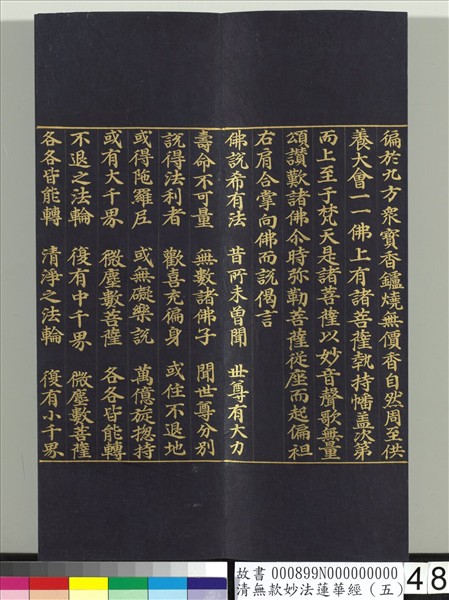 徧於九方衆寶香鑪燒無價香自然周至供
養大會一一佛上有諸菩薩執持幡盖次第
而上至于梵天是諸菩薩以妙音聲歌無量
頌讚歎諸佛尒時弥勒菩薩從座而起偏袒
右肩合掌向佛而說偈言
佛說希有法 昔所未曾聞 世尊有大力
壽命不可量 無數諸佛子 聞世尊分別
說得法利者 歡喜充徧身 或住不退地
或得陁羅尼 或無礙樂說 萬億旋惣持
或有大千界 微塵數菩薩 各各皆能轉
不退之法輪 復有中千界 微塵數菩薩
各各皆能轉 清淨之法輪 復有小千界
故書 000899N000000000
清無款妙法蓮華經(五)
48